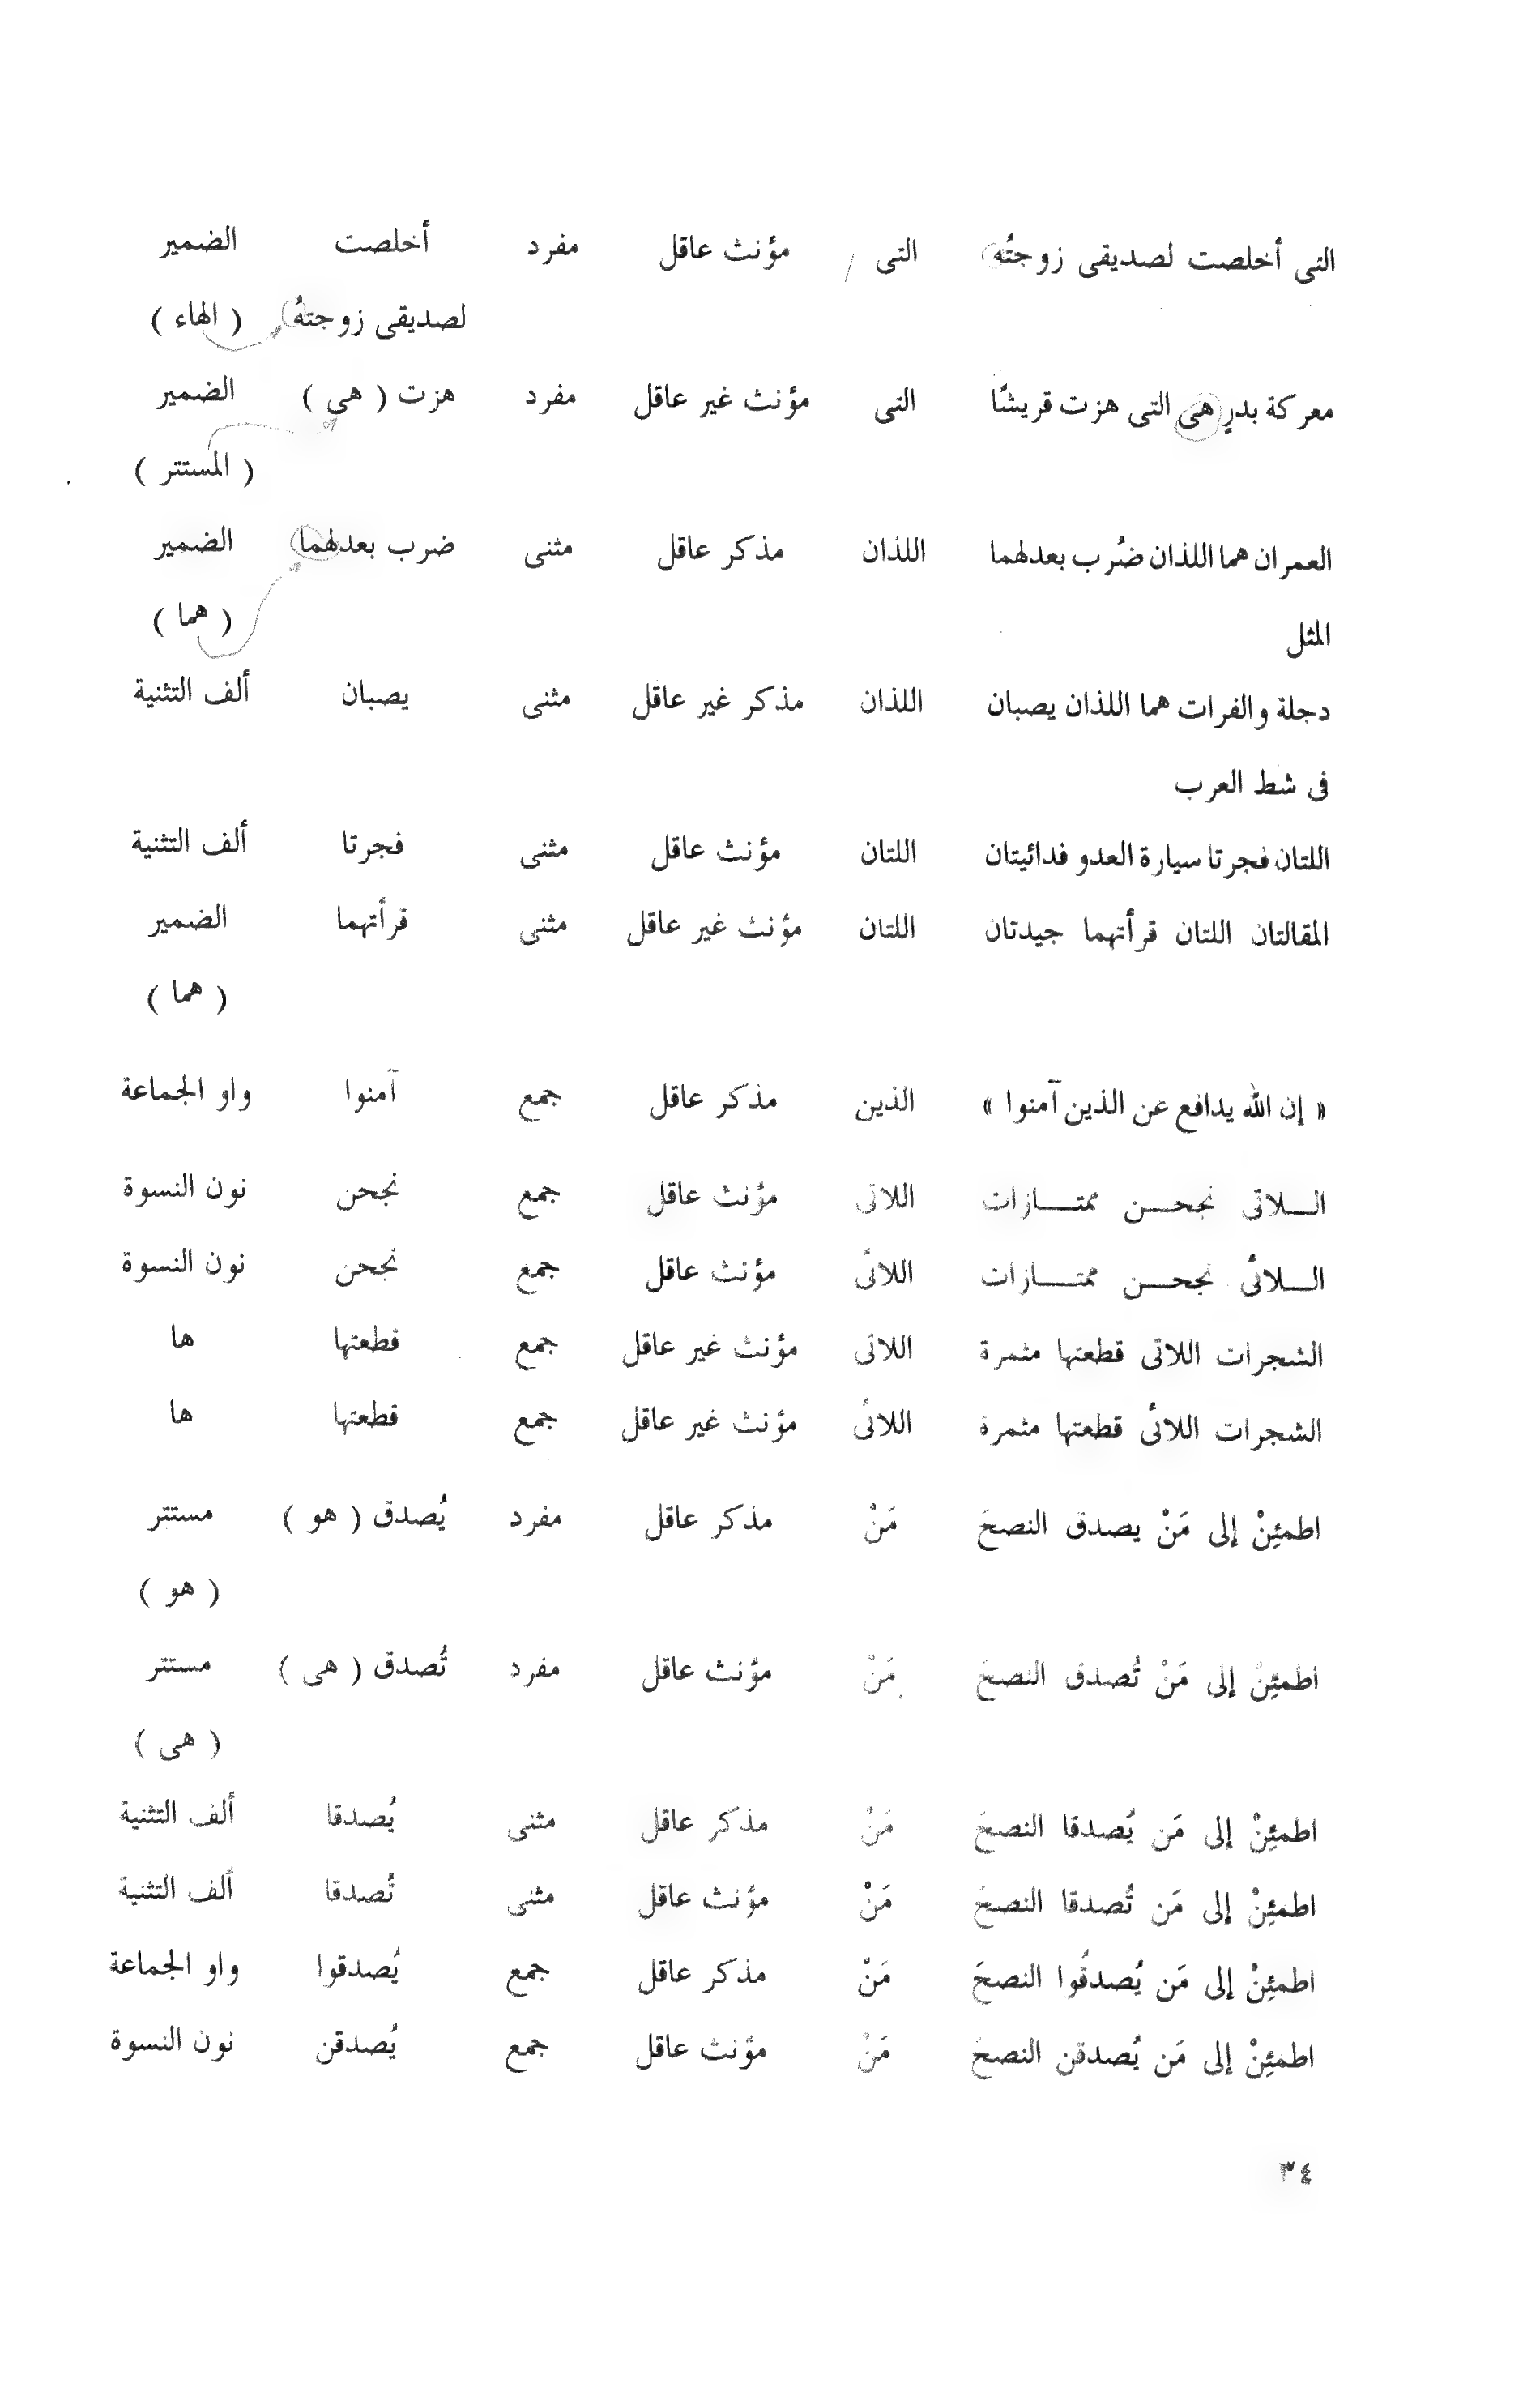 التى أخلصت لصديقى زوجتُه التى مؤنث عاقل مفرد أخلصت الضمير
لصديقى زوجتهُ ( الهاء )
معركة بدرٍ هى التى هزت قريشًا التى مؤنث غير عاقل مفرد هزت ( هى ) الضمير
( المستتر )
العمران هما اللذان ضُرب بعدلهما اللذان مذكر عاقل مثنى ضرب بعدلهما الضمير
المثل ( هما )
دجلة والفرات هما اللذان يصبان اللذان مذكر غير عاقل مثنى يصبان ألف التثنية
فى شط العرب
اللتان فجرتا سيارة العدو فدائيتان اللتان مؤنث عاقل مثنى فجرتا ألف التثنية
المقالتان اللتان قرأتهما جيدتان اللتان مؤنث غير عاقل مثنى قرأتهما الضمير
( هما )
« إن الله يدافع عن الذين آمنوا » الذين مذكر عاقل جمع آمنوا واو الجماعة
الـــلاتى نجحـــن ممتـــازات اللاتى مؤنث عاقل جمع نجحن نون النسوة
الـــلائى نجحـــن ممتـــازات اللائى مؤنث عاقل جمع نجحن نون النسوة
الشجرات اللاتى قطعتها مثمرة اللاتى مؤنث غير عاقل جمع قطعتها ها
الشجرات اللائى قطعتها مثمرة اللائى مؤنث غير عاقل جمع قطعتها ها
اطمئِنْ إلى مَنْ يصدق النصحَ مَنْ مذكر عاقل مفرد يُصدق ( هو ) مستتر
( هو )
اطمئِنْ إلى مَنْ تُصدق النصحَ مَنْ مؤنث عاقل مفرد تُصدق ( هى ) مستتر
( هى )
اطمئِنْ إلى مَن يُصدقا النصحَ مَنْ مذكر عاقل مثنى يُصدقا ألف التثنية
اطمئِنْ إلى مَن تُصدقا النصحَ مَنْ مؤنث عاقل مثنى تُصدقا ألف التثنية
اطمئِنْ إلى مَن يُصدقُوا النصحَ مَنْ مذكر عاقل جمع يُصدقوا واو الجماعة
اطمئِنْ إلى مَن يُصدقن النصحَ مَنْ مؤنث عاقل جمع يُصدقن نون النسوة
٣٤